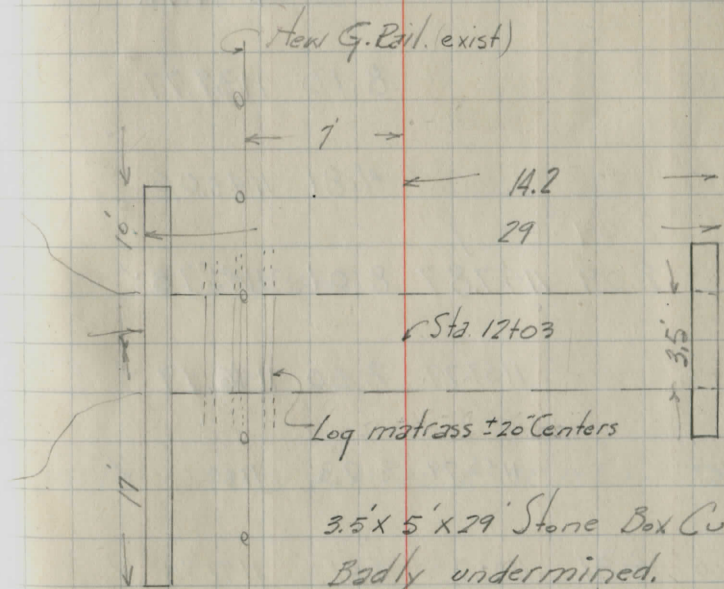 New G.Rail. (exist)
7'
14.2
10'
29
Sta. 12+03
3.5'
Log matrass ±20" Centers
17'
3.5' x 5' x 29' Stone Box Cu
Badly undermined.